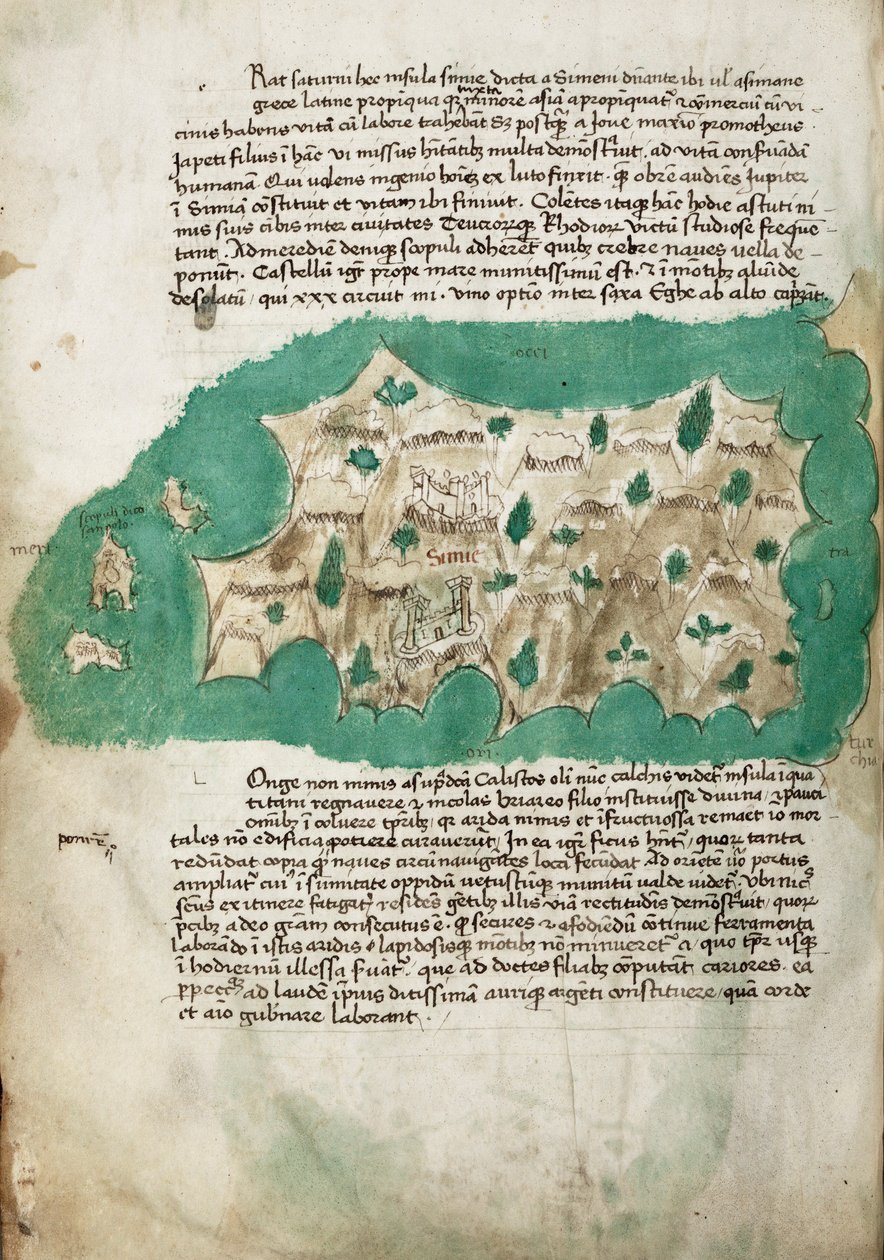 Rat saturni hec insula simie dicta a Simeni dn̄ante ibi ul' asimane
iuxta
grece latine propīqua qꝛ minorē asiā apropīquat' ⁊ cōmerciū cū vi
cinis habens vitā cū labore trahebat Sꝫ postqꝫ a Jove maxīo promotheus
Japeti filius ī hāc vi missus hītātibꝫ multa demōstᵘvit . ad vitā confᵘādā
humanā . Qui volens ingenio hoīeꝫ ex luto finxit . qꝫ obrē audiēs Jupiter
ī Simiā cōstituit et vitam ibi finivit . Colētes itaqꝫ hāc hodie astuti ni
mis suis cibis inter civitates Teucrorꝫqꝫ Rhodior, victū studiose frequē
tant . Admeredieʼ deniqꝫ scopuli adherēt quibꝫ crebre naves vella de
ponūt . Castellū igr̄ prope mare munitissimū est . ⁊ ī mōtibꝫ aliūde
desolatū / qui xxx circuit mi . vino optīo inter saxa Eghe ab alto
occi
scopuli dicti
sanpolo .
meri .
Simie
tra
.ori.
tur
chia
Onge non nimis a sup̄dcā Calistos olī nūc calchis videt' īnsula ī qua
titani regnavere ⁊ nicolas briareo filio instituisse divina / ⁊ pauci
omībꝫ ī colvere tp̄ribꝫ / qꝛ arida nimis et īfructuossa remaēt io mor
tales nō edificia potiere curaverūt / In ea igr̄ ficus hn̄t' / quor, tanta
redūdat copia qꝫ naves circūnavigātes loci fecūdat Ad oriētē vo portus
ampliat' cui' ī sūmitate oppidū vetustūqꝫ munitū valde videt' . Vbi nic
scus ex itinere fatigat' residēs gētibꝫ illis viā rectitudīs demōstᵘvit / quor
p̄cibꝫ adeo grām consecutus ē . qꝫ secures ⁊ ad fodiēdū cōtinue ferramenta
laborādo ī istis aridis ⁊ lapidosisqꝫ mōtibꝫ nō minueret' a quo tp̄r usqꝫ
ī hodiernū illessa fuāt' . que ad doctes filiabꝫ cōputānt cariores . ea
ad laudē ditissimā auriqꝫ argēti constituere / quā corde
et aīo gub'nare laborant .